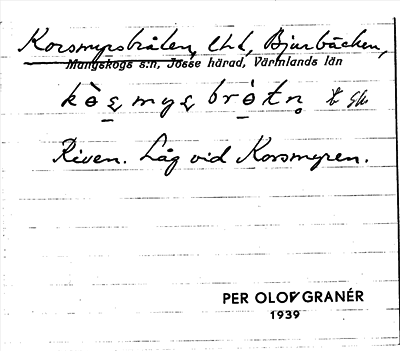 Korsmyrsbråten, lhl, Bjurbäcken,
Mangskogs s:n, Jösse härad, Värmlands län
Riven. Låg vid Korsmyren.
PER OLOF GRANÉR
1939